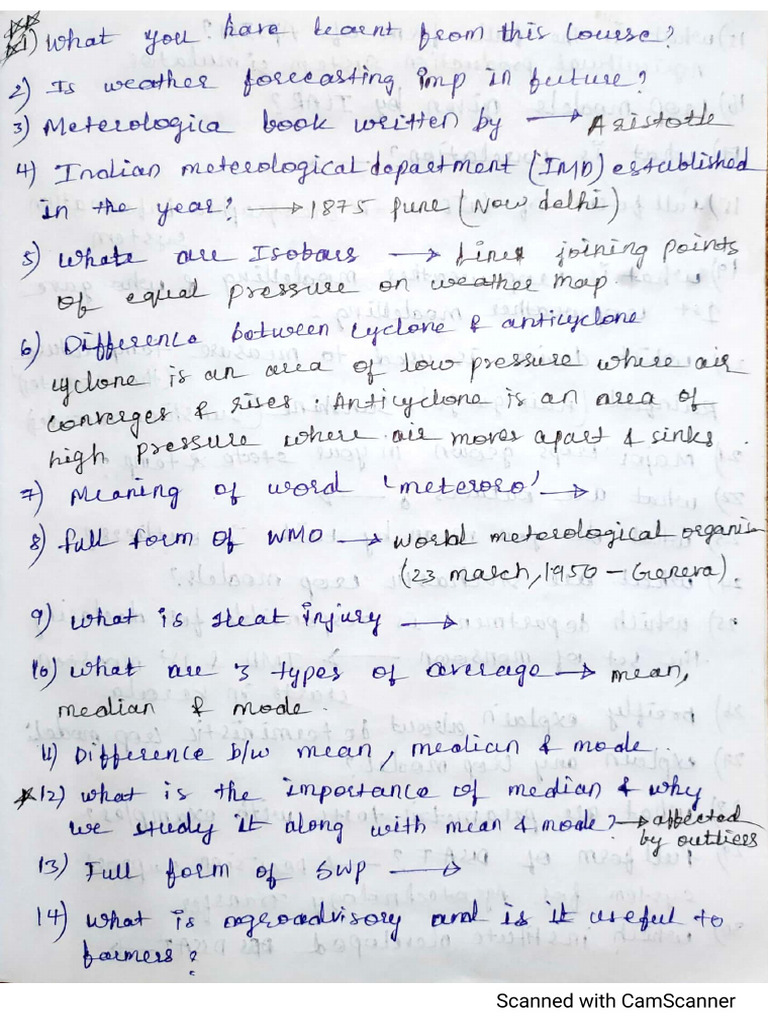 1) What you have learnt from this course?
2) Is weather forecasting imp in future?
3) Meterologica book written by → Aristotle
4) Indian meterological department (IMD) established
in the year? → 1875 pune (Now delhi)
5) Whate are Isobars → Lines joining points
of equal pressure on weather map
6) Difference between cyclone & anticyclone
cyclone is an area of low pressure where air
converges & rises. Anticyclone is an area of
high pressure where air moves apart & sinks.
7) Meaning of word 'meteroro' →
8) full form of WMO → world meterological organis
(23 march, 1950 - Geneva).
9) What is Heat injury →
10) What are 3 types of average → mean,
median & mode.
11) Difference b/w mean, median & mode.
12) What is the importance of median & why
we study it along with mean & mode? → affected
by outliers
13) Full form of SWP →
14) What is agroadvisory and is it useful to
farmers?
Scanned with CamScanner